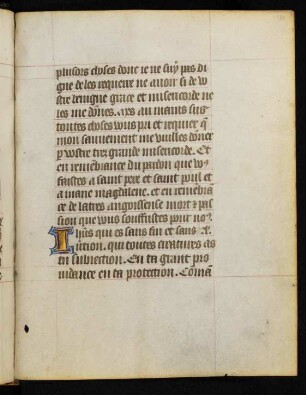 plusors choses donc ie ne suy pas di
gne de les requerir ne auoir si de vo
stre benigne grace et misericorde ne
les me donnes. Mes au mains sus
toutes choses vous pri et requier q̃
mon sauuement me vuilles donner
par vostre tres grande misericorde. Et
en remenbrance du pardon que vo9
faistes a saint pere et saint poul et
a marie magdalene. et en remenbrã
ce de la tres angoissense mort et pas
sion que vous souffristes pour no9
Ihũs qui es sans fin et sans
lution. qui toutes creatures as
en subiection. En ta grant pro
uidance en ta protection. Comãt